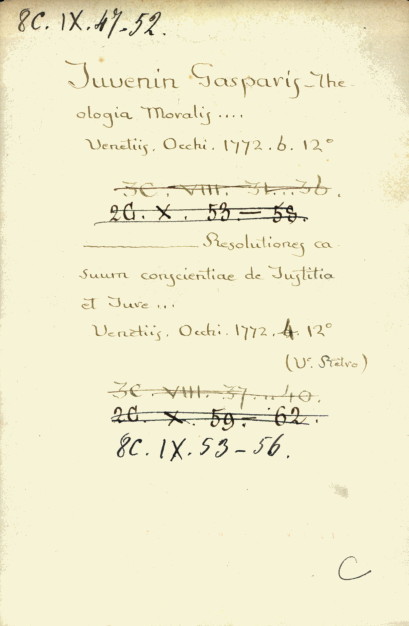 8C. IX. 47-52.
Juvenin Gasparis - The-
ologia Moralis ....
Venetiis. Occhi. 1772. 6. 12°
3C. VIII. 31...36.
2C. X. 53 - 58.
Resolutiones ca
suum conscientiae de Justitia
et Jure ...
Venetiis. Occhi. 1772. 4. 12°
3C. VIII. 37...40.
2C. X. 59 - 62.
8C. IX. 53-56.
C